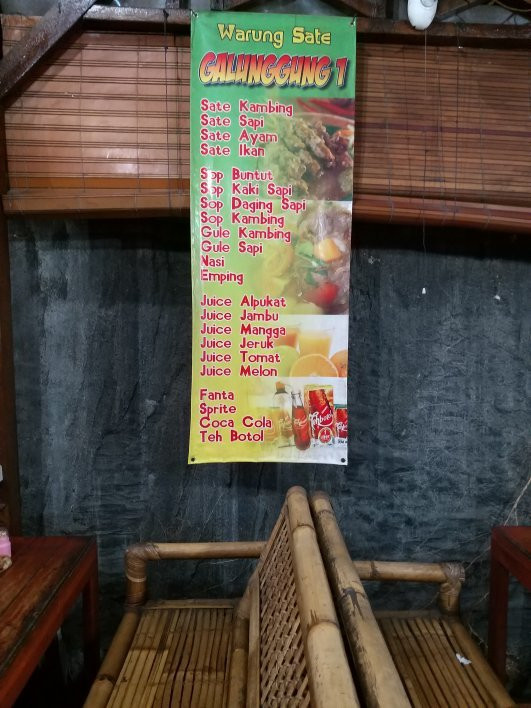 Warung Sate
GALUNGGUNG 1
Sate Kambing
Sate Sapi
Sate Ayam
Sate Ikan
Sop Buntut
Sop Kaki Sapi
Sop Daging Sapi
Sop Kambing
Gule Kambing
Gule Sapi
Nasi
Emping
Juice Alpukat
Juice Jambu
Juice Mangga
Juice Jeruk
Juice Tomat
Juice Melon
Fanta
Sprite
Coca Cola
Teh Botol